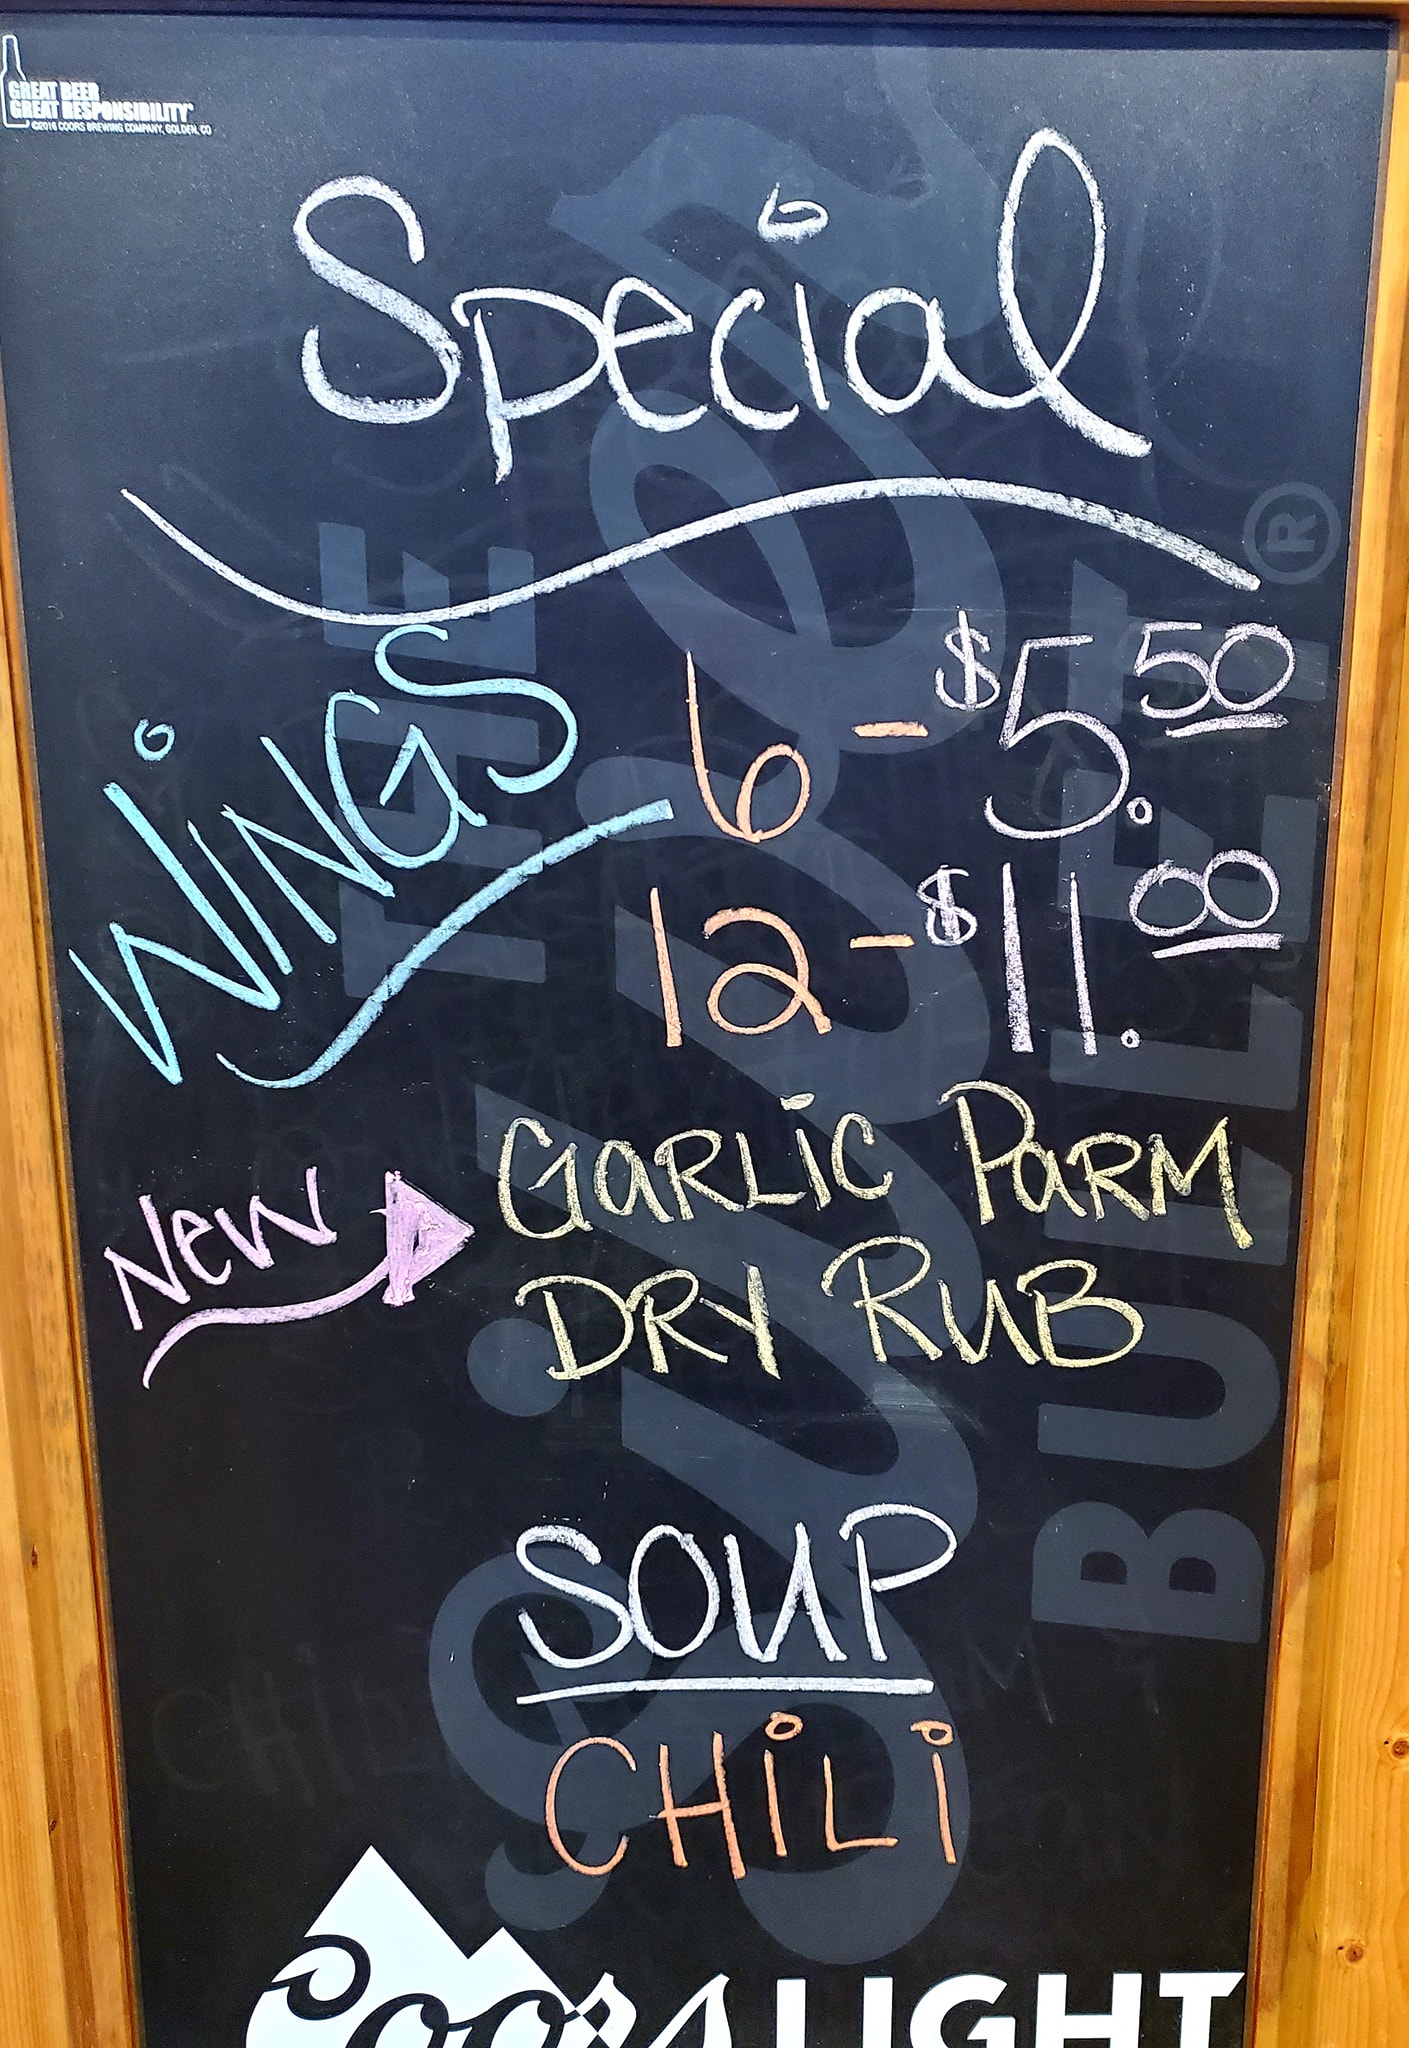 GREAT BEER
GREAT RESPONSIBILITY®
©2016 COORS BREWING COMPANY, GOLDEN, CO
Special
WiNGS
6 - $5.50
12 - $11.00
NeW
GaRLiC PaRM
DRY RuB
THE
Silver
BULLET®
SOUP
CHiLi
Coors LIGHT